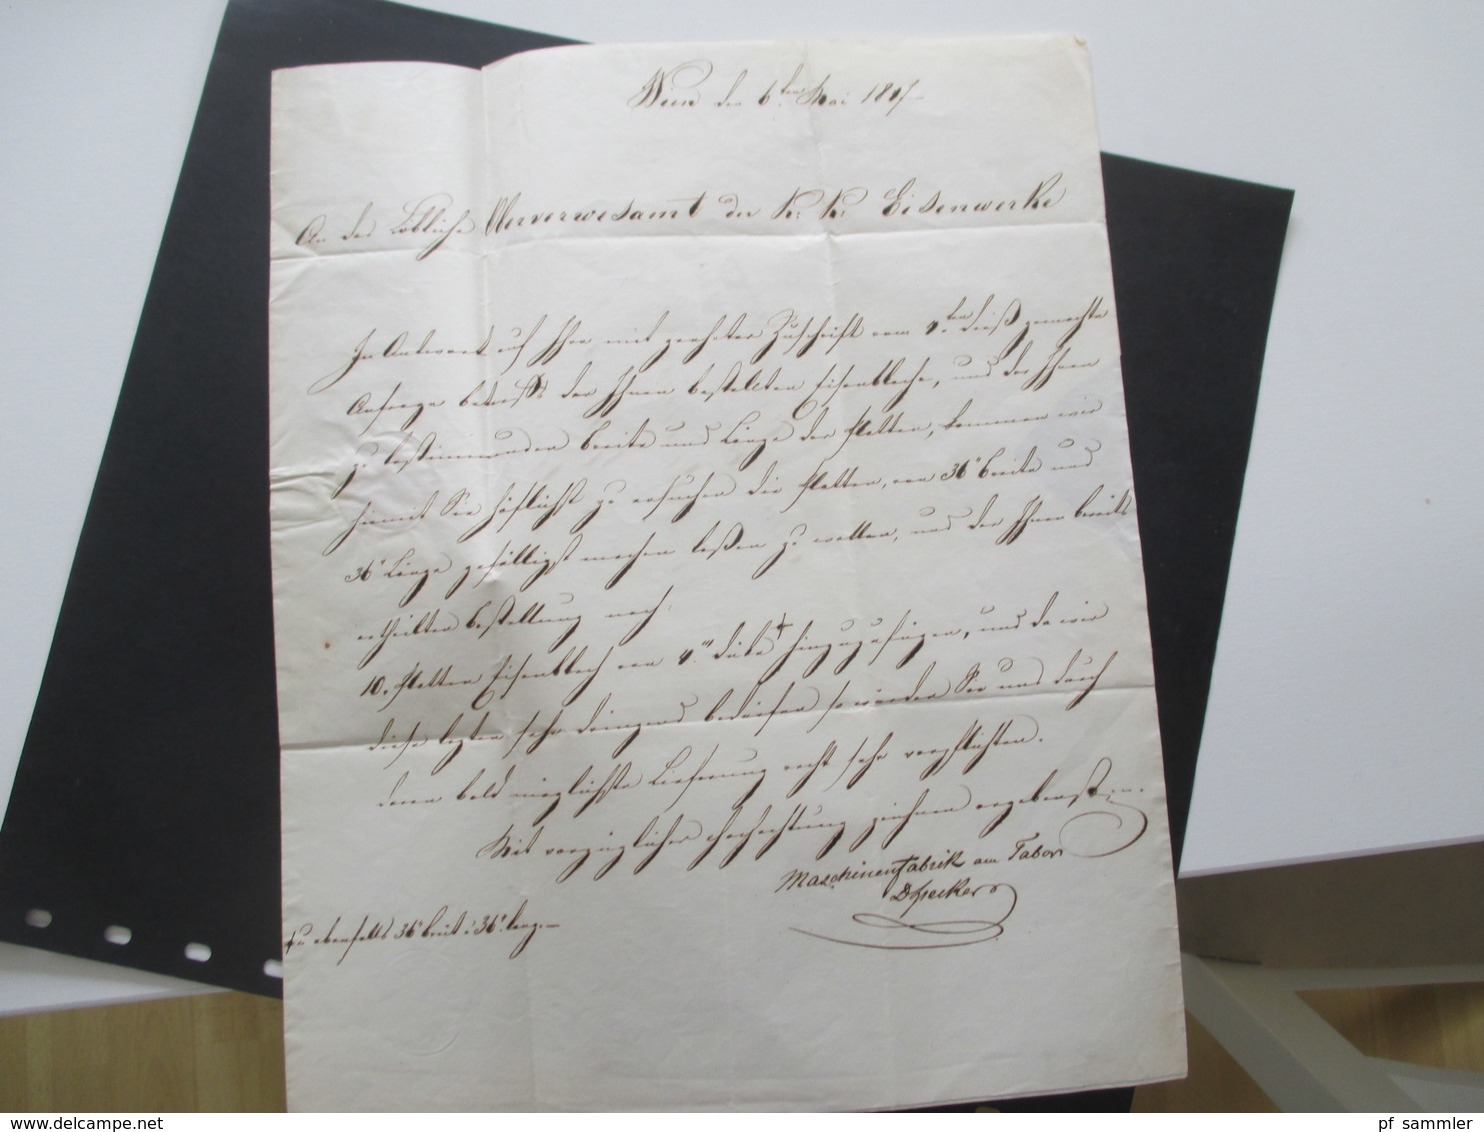 Wien den 6ten Mai 18
An das Löbliche Oberverwesamt der K: K: Eisenwerke
In Antwort auf Ihre mit geehrter Zuschrift vom 4ten dieß gemachte
Anfrage betreffs der Ihnen bestellten Eisenbleche, und der Ihnen
zu bestimmenden Breite und Länge der Platten, kommen wir
hiemit Sie höflichst zu ersuchen die Platten, von 36" Breite und
36" Länge gefälligst machen laßen zu wollen, und der Ihnen bereits
ertheilten Bestellung noch
10. Platten Eisenblech von 4''' Dicke + hinzuzufügen, und da wir
diese lezten sehr dringend bedürfen so würden Sie uns durch
deren bald möglichste Lieferung recht sehr verpflichten.
Mit vorzüglicher Hochachtung zeichnen ergebenst
Maschinenfabrik am Tabor
D Specker
+ zu ebenfalls 36" breit & 36" lang. —
pf_sammler